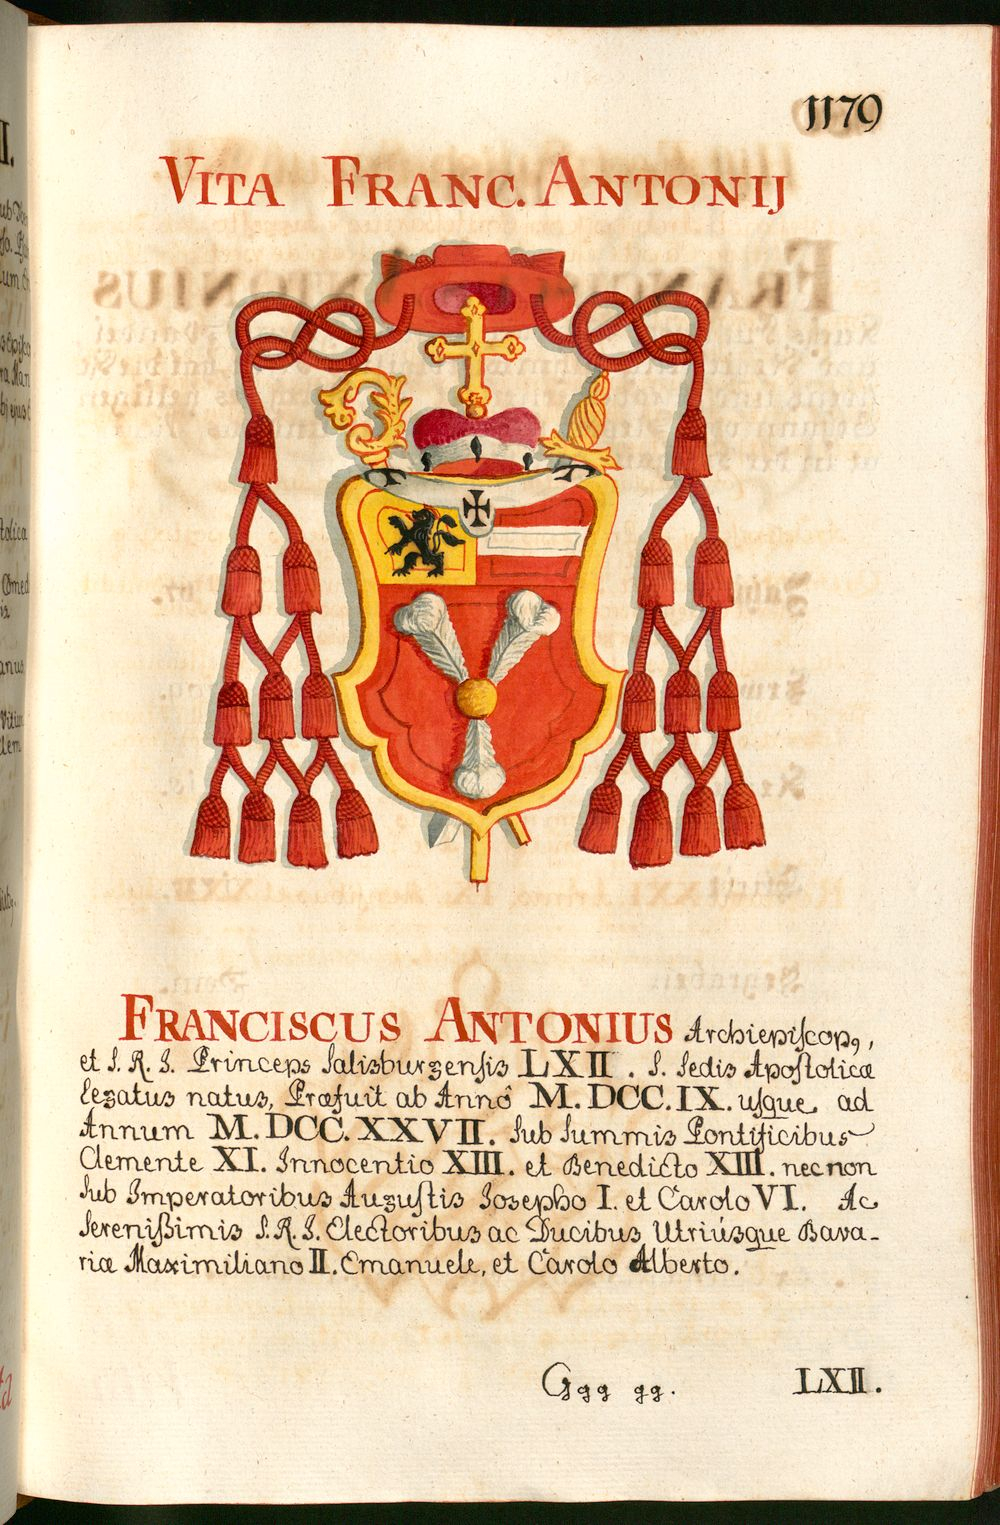 1179
VITA FRANC. ANTONIJ
FRANCISCUS ANTONIUS Archiepiſcopꝰ,
et S. R. I. Princeps Salisburgenſis LXII. S. Sedis Apoſtolicæ
Legatus natus, Præfuit ab Annô M. DCC. IX. uſque ad
Annum M. DCC. XXVII. Sub Summis Pontificibus
Clemente XI. Innocentio XIII. et Benedicto XIII. nec non
Sub Imperatoribus Auguſtis Iosepho I. et Carolo VI. Ac
Sereniſsimis S. R. I. Electoribus ac Ducibus Utriúsque Bava-
riæ Maximiliano II. Emanuele, et Carolo Alberto.
Ggg gg. LXII.